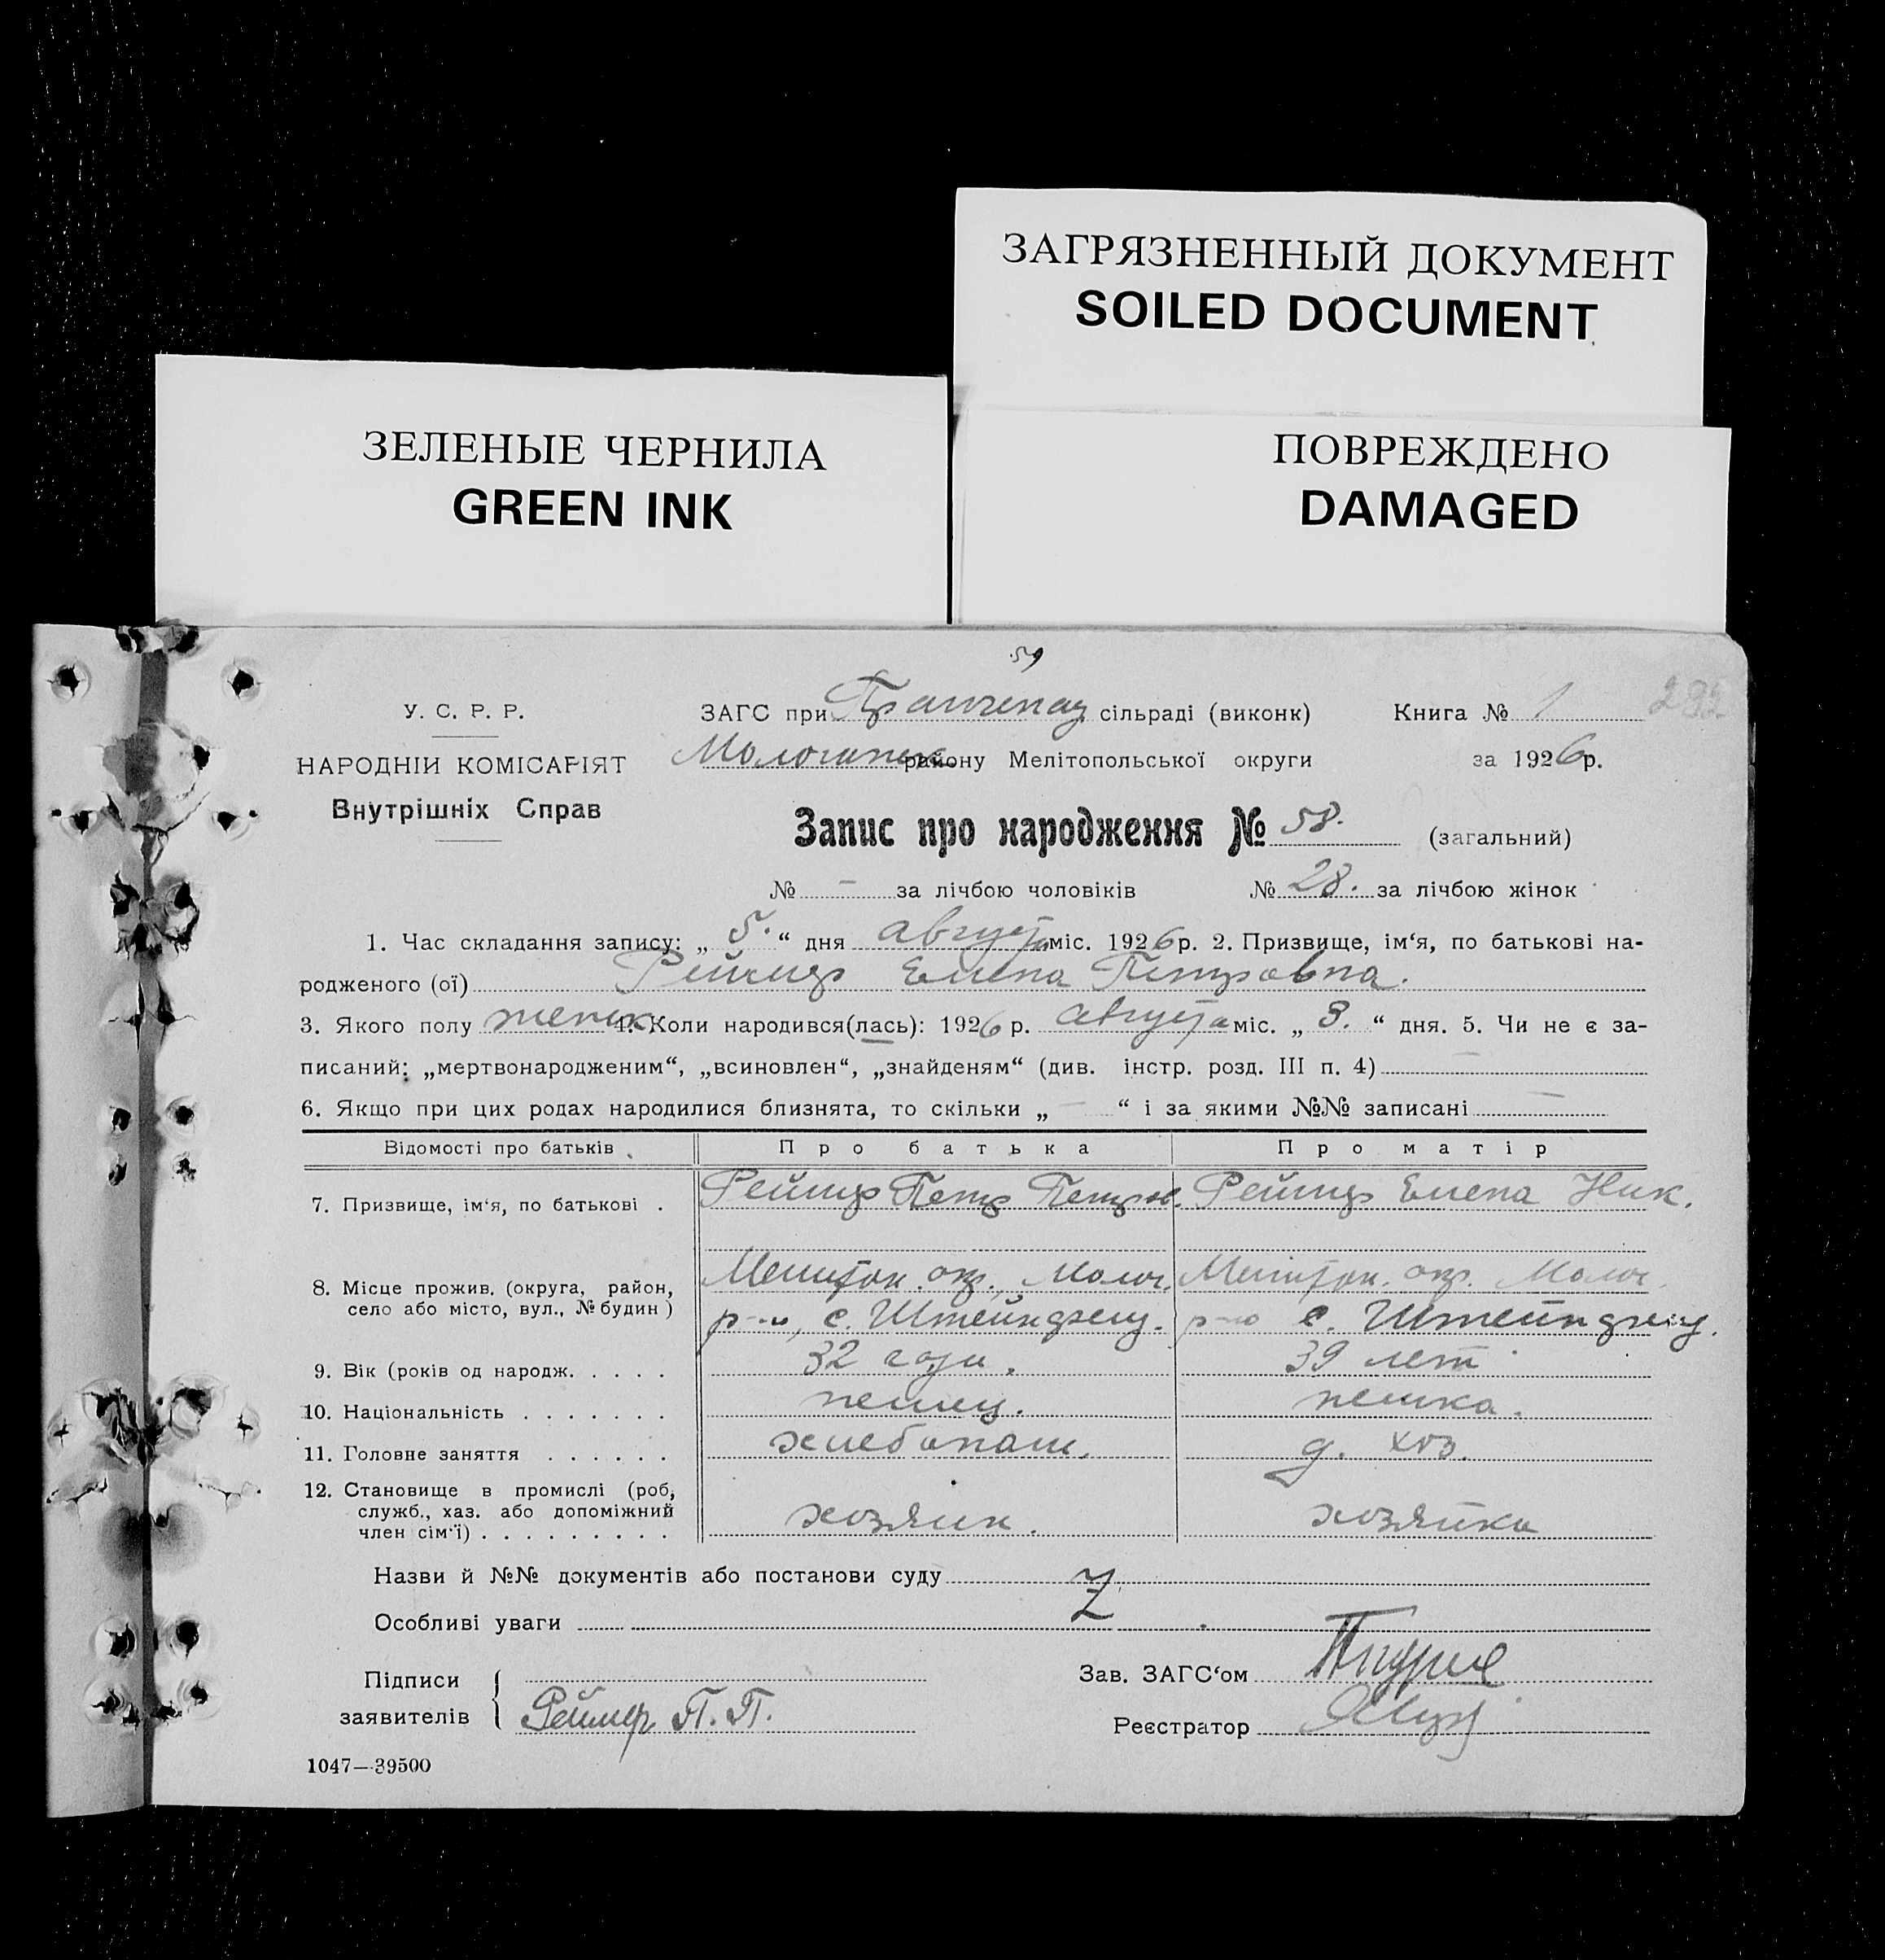 ЗАГРЯЗНЕННЫЙ ДОКУМЕНТ
SOILED DOCUMENT
ЗЕЛЕНЫЕ ЧЕРНИЛА
GREEN INK
ПОВРЕЖДЕНО
DAMAGED
59
У. С. Р. Р.
ЗАГС при сільраді (виконк)
Книга № 1
282
НАРОДНІЙ КОМІСАРІЯТ
району Мелітопольської округи
за 1926р.
Внутрішніх Справ
Запис про народження № 58. (загальний)
№ – за лічбою чоловіків № 28. за лічбою жінок
1. Час складання запису: „ 5. “ дня августа міс. 1926р. 2. Призвище, ім‘я, по батькові на-
родженого (ої) Реймер Елена Петровна.
3. Якого полу женск 4. Коли народився(лась): 1926 р. августа міс. „ 3. “ дня. 5. Чи не є за-
писаний: „мертвонародженим“, „всиновлен“, „знайденям“ (див. інстр. розд. III п. 4) –
6. Якщо при цих родах народилися близнята, то скільки „ – “ і за якими №№ записані –
Відомості про батьків Про батька Про матір
7. Призвище, ім‘я, по батькові . Реймер Петр Петров. Реймер Елена Ник.
8. Місце прожив. (округа, район, Мелитоп. окр., Молоч. Мелитоп. окр. Молоч.
село або місто, вул., № будин ) р-н, с. Штейнфельд. р-н с. Штейнфельд.
9. Вік (років од народж. . . . . 32 года. 39 лет
10. Національність . . . . . . . немец. немка.
11. Головне заняття . . . . . . хлебопаш. д. хоз.
12. Становище в промислі (роб,
служб., хаз. або допоміжний
член сім‘ї) . . . . . . . . . хозяин. хозяйка
Назви й №№ документів або постанови суду
Z
Особливі уваги
Підписи
заявителів Реймер П. П.
Зав. ЗАГС‘ом
Реєстратор
1047—39500